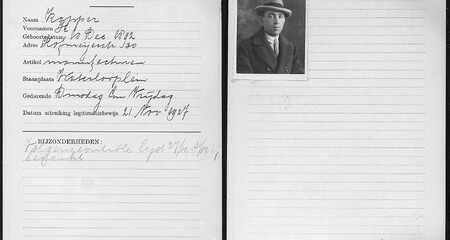 Naam Kypper
Voornamen H.
Geboortedatum 10 Dec 1882
Adres Hofmeyrstr 130
Artikel manufacturen
Staanplaats Waterlooplein
Gedurende Dinsdag en Vrijdag
Datum uitreiking legitimatiebewijs 21 Nov 1927
BIJZONDERHEDEN:
Volgens controle